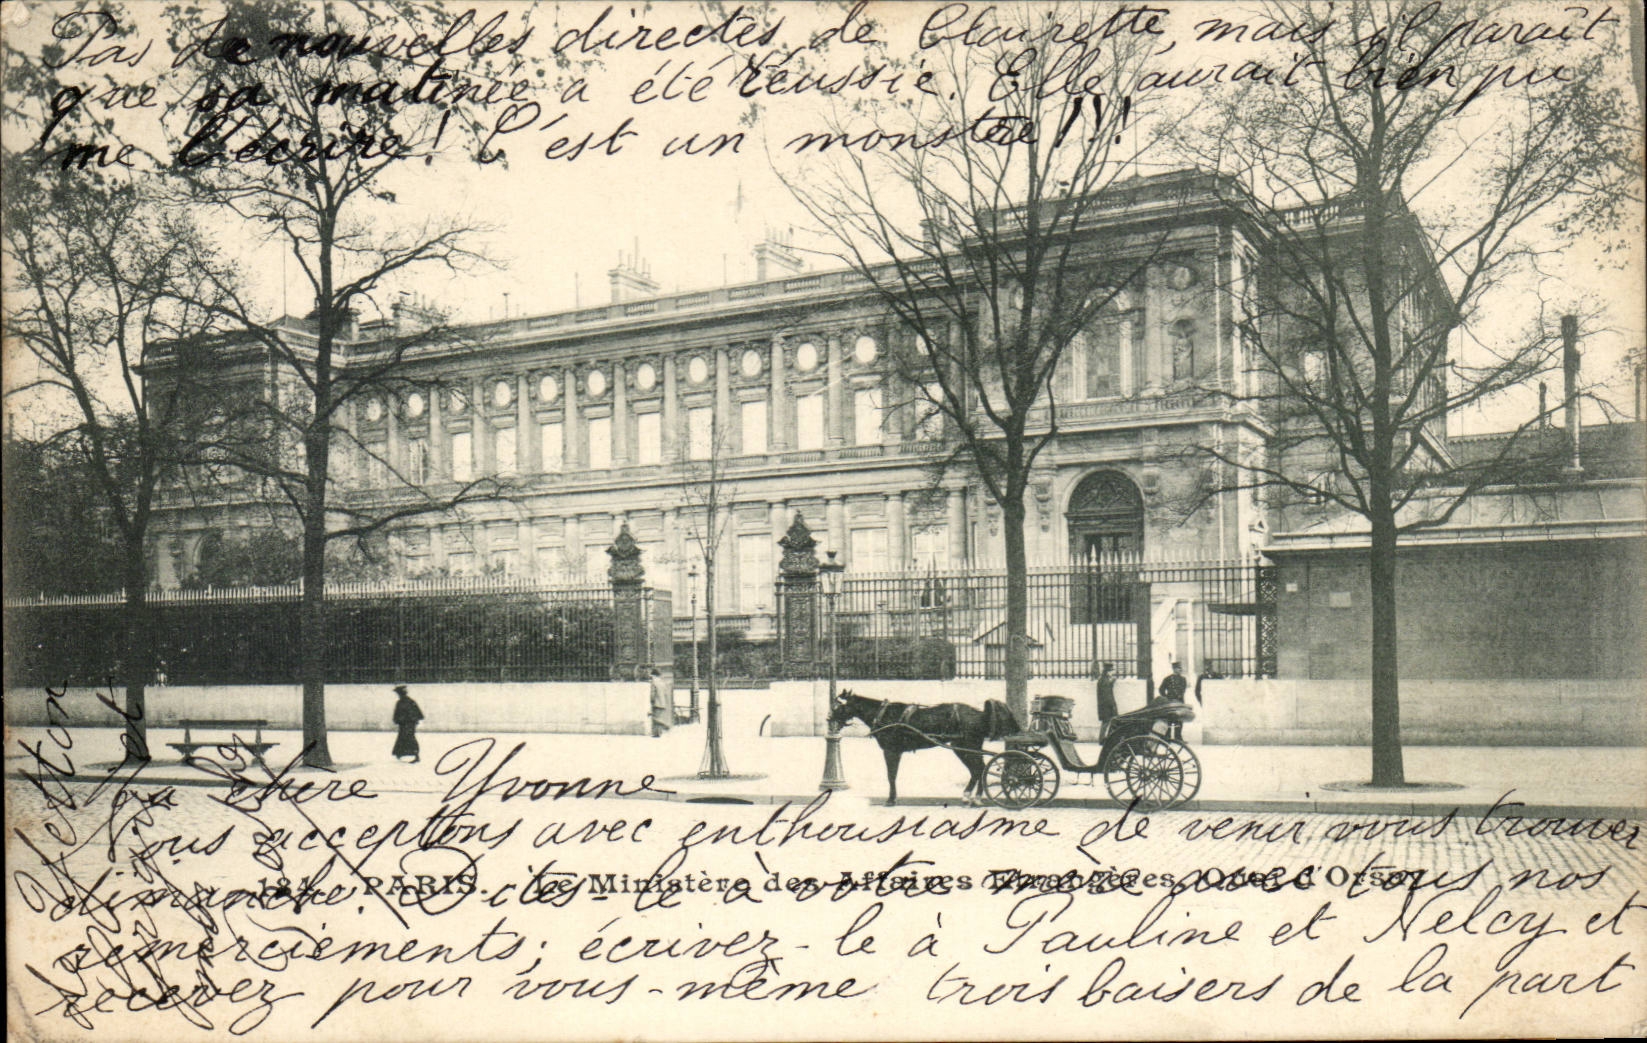 Pas de nouvelles directes de Clairette, mais il paraît
que sa matinée a été réussie. Elle aurait bien pu
me l'écrire! C'est un monstre!!!
Ma chère Yvonne
Nous acceptons avec enthousiasme de venir vous trouver
dimanche. Dites-le à votre mère avec tous nos
remerciements; écrivez-le à Pauline et Nelcy et
recevez pour vous-même trois baisers de la part
184. PARIS. Le Ministère des Affaires Étrangères, Quai d'Orsay